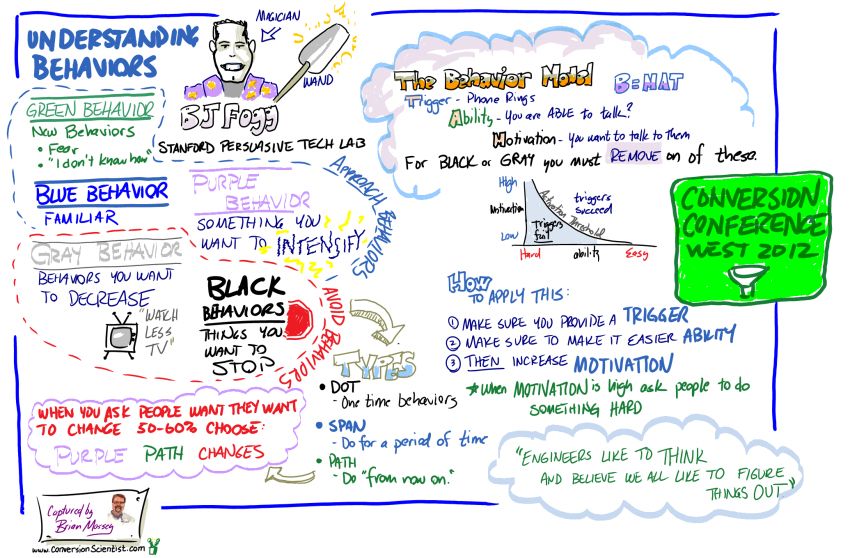 UNDERSTANDING
BEHAVIORS
MAGICIAN
WAND
BJ FOGG
STANFORD PERSUASIVE TECH LAB
GREEN BEHAVIOR
New Behaviors
• Fear
• "I don't know how"
BLUE BEHAVIOR
FAMILIAR
PURPLE
BEHAVIOR
SOMETHING YOU
WANT TO INTENSIFY
APPROACH BEHAVIORS
GRAY BEHAVIOR
BEHAVIORS YOU WANT
TO DECREASE
"WATCH
LESS
TV"
BLACK
BEHAVIORS
THINGS YOU
WANT TO
STOP
AVOID BEHAVIORS
WHEN YOU ASK PEOPLE WANT THEY WANT
TO CHANGE 50-60% CHOOSE:
PURPLE PATH CHANGES
TYPES
• DOT
- One time behaviors
• SPAN
- Do for a period of time
• PATH
- Do "from now on."
The Behavior Model B=MAT
Trigger - Phone Rings
Ability - You are ABLE to talk?
Motivation - You want to talk to them
FOR BLACK or GRAY you must REMOVE on of these.
High
Motivation
Low
Activation Threshold
triggers
succeed
Triggers
fail
Hard
ability
Easy
CONVERSION
CONFERENCE
WEST 2012
How
TO APPLY THIS:
1 MAKE SURE YOU PROVIDE A TRIGGER
2 MAKE SURE TO MAKE IT EASIER ABILITY
3 THEN INCREASE MOTIVATION
★ When MOTIVATION is high ask people to do
SOMETHING HARD
"ENGINEERS LIKE TO THINK
AND BELIEVE WE ALL LIKE TO FIGURE
THINGS OUT"
Captured by
Brian Massey
www.ConversionScientist.com